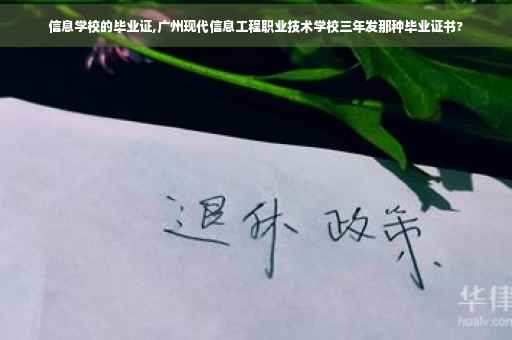 信息学校的毕业证,广州现代信息工程职业技术学校三年发那种毕业证书?
退休 政策
华律
hualv.com